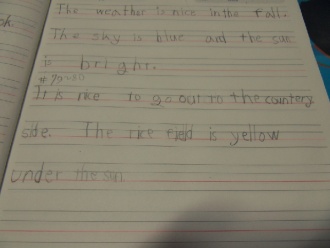 ok.
The weather is nice in the fall.
The sky is blue and the sun
is bright.
It is nice to go out to the countery
side. The rice field is yellow
under the sun